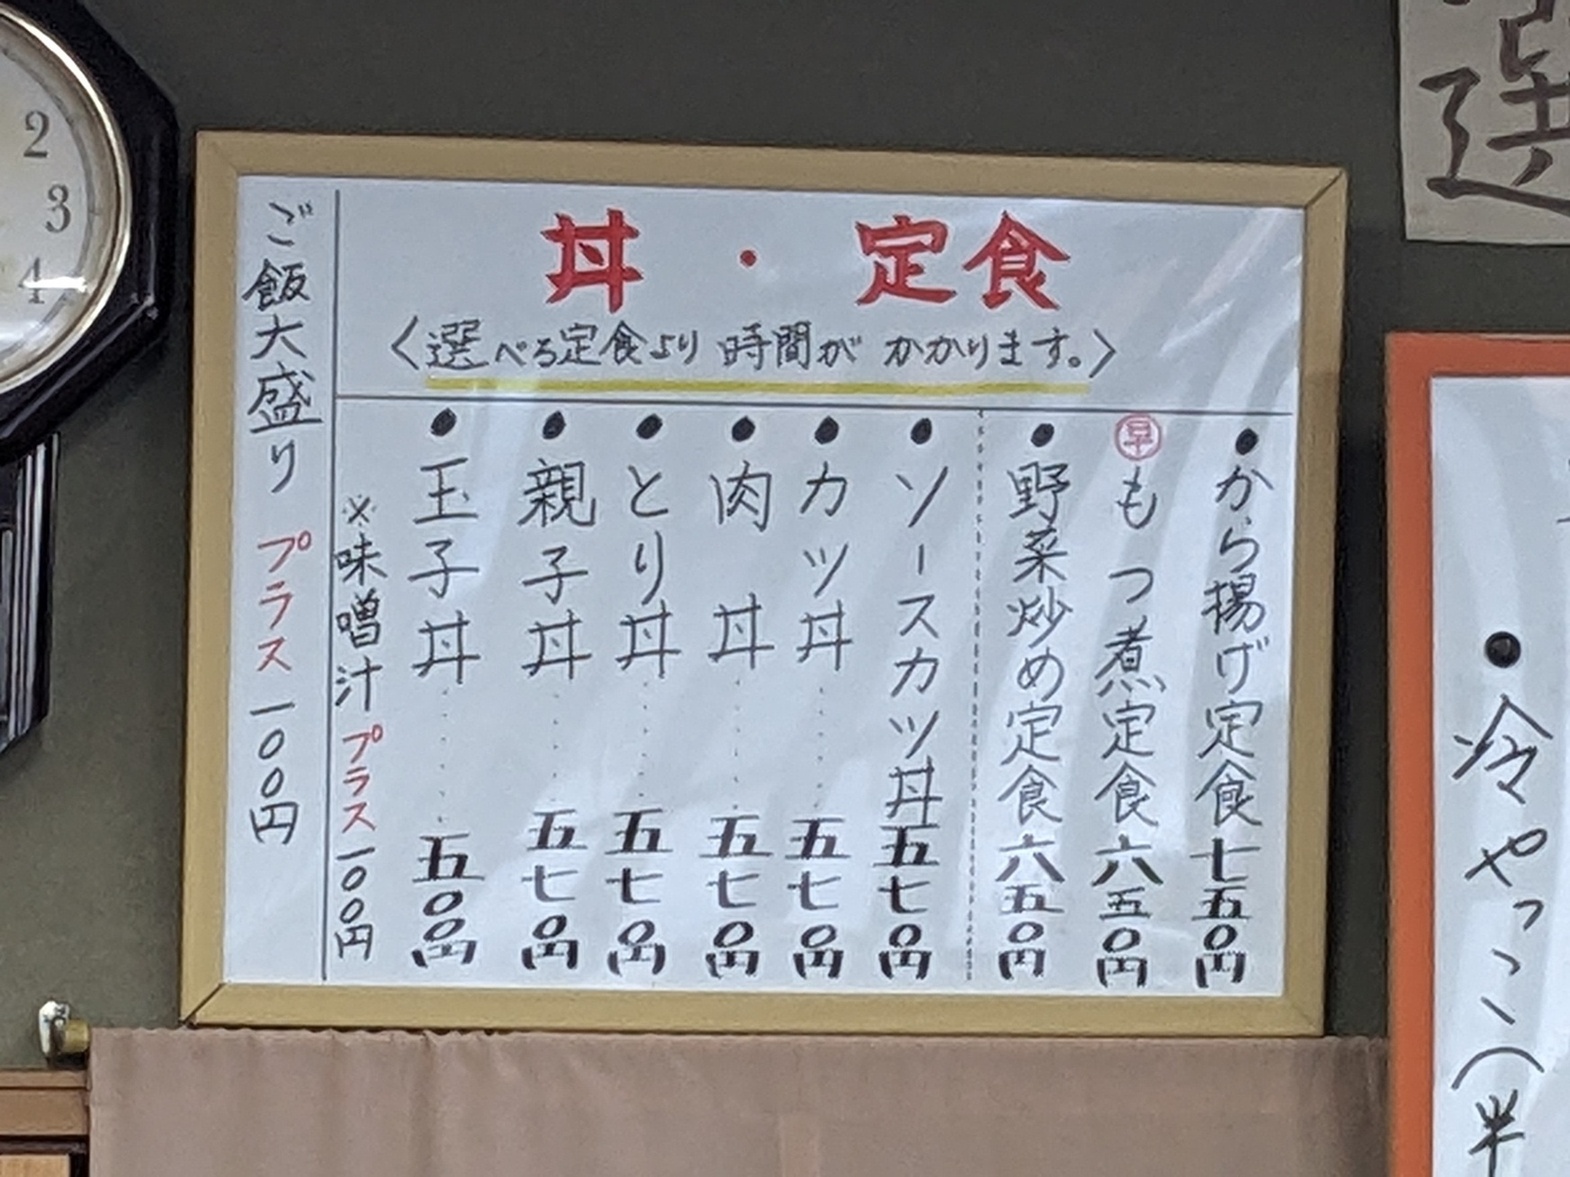 丼・定食
〈選べる定食より時間がかかります。〉
●から揚げ定食七五〇円
早もつ煮定食六五〇円
●野菜炒め定食六五〇円
●ソースカツ丼五七〇円
●カツ丼……五七〇円
●肉丼……五七〇円
●とり丼……五七〇円
●親子丼……五七〇円
●玉子丼……五〇〇円
※味噌汁プラス一〇〇円
ご飯大盛りプラス一〇〇円
選
●冷やっこ(半
2
3
4